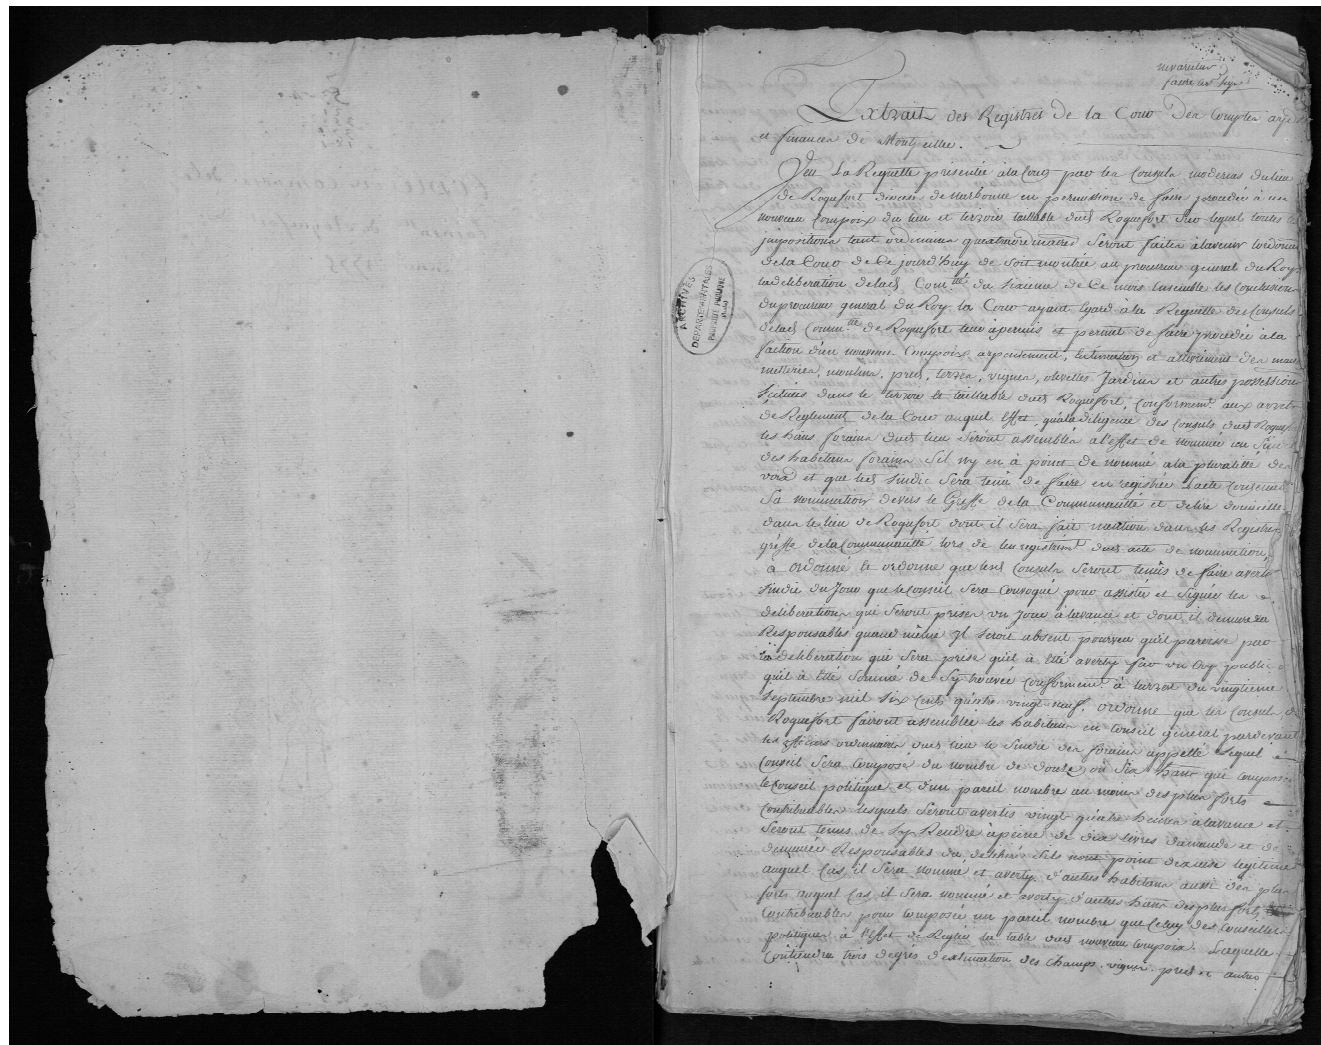 ne varietur
Extrait des Registres de la Cour Des Comptes aydes
et finances de Montpellier.
Veu La Requette presentée à la Cour par les Consuls modernes du lieu
de Roquefort dioceze de narbonne en permission de faire procedér à un
nouveau Compoix du lieu et terroir taillable dud. Roquefort sur lequel toutes les
impositions tant ordinaires quextraordinaires Seront faites àlavenir lordonnance
de la Cour de Ce jourd'huy de Soit montrée au procureur general du Roy
la deliberation delad. Comm.té du Sixieme de Ce mois Ensemble les Conclusions
du procureur general du Roy La Cour ayant Egard à la Requette des Consuls
delad. Comm.té de Roquefort leur àpermis et permet de faire procedér àla
faction d'un nouveau Compoix arpentement, Estimation et allivrement des
metteries, moulins, preds, terres, vignes, olivettes Jardins et autres possessions
Scituées dans le terroir et taillable dud. Roquefort, Conformem.t aux arrets
de Reglement de la Cour auquel Effet, quàla diligence des Consuls dud. Roquefort
les hans forains dud. lieu Seront assemblés à l'effet de nommér un Sindic
des habitans forains Sil ny en à point de nommé ala pluralitté des
voix et que led. Sindic Sera tenu de faire en registrér Lacte Contenant
Sa nomination devers le Greffe de la Communautté et delire domicille
dans le lieu de Roquefort dont il Sera fait mention dans les Registres
gréffe de la Communautté lors de lenregistrem.t dud. acte de nomination,
à ordonné Et ordonne que lesd. Consuls Seront tenus de faire avertir
Sindic du Jour que le Conseil Sera Convoqué pour assistér et Signér les
deliberations qui Seront prises un Jour àlavance et dont il demurera
Responsables quand même Jl Seroit absent pourveu quil paroisse par
la deliberation qui Sera prise quil à Etté averty par un Cry public
quil à Etté Sommé de Sy trouvér Conformem.t à larret du vingtieme
Septembre mil Six Cents quatre vingt neuf, ordonne que les Consuls de
Roquefort fairont assemblér les habitans en Conseil général pardevant
les officiers ordinaires dud. lieu le Sindic des forains appellé Lequel
Conseil Sera Composé du nombre de douze, où Six hans qui Composent
le Conseil politique et d'un pareil nombre au moins des plus forts
Contribuables lesquels Seront avertis vingt quatre heures àlavance et
Seront tenus de Sy Rendre àpeine de dix livres damande et de
demurér Responsables du Sils nont point dexcuse legitime
auquel Cas il Sera nommé et averty d'autres habitans aussi des plus
forts auquel Cas il Sera nommé et averty d'autres hans des plus forts
Contribuables pour Composér un pareil nombre que Celuy des Conseillers
politiques à l'Effet de Reglér la table dud. nouveau Compoix. Laquelle
Contiendra trois degrés d'estimation des Champs, vignes, preds et autres
ARCHIVES
DEPARTEMENTALES